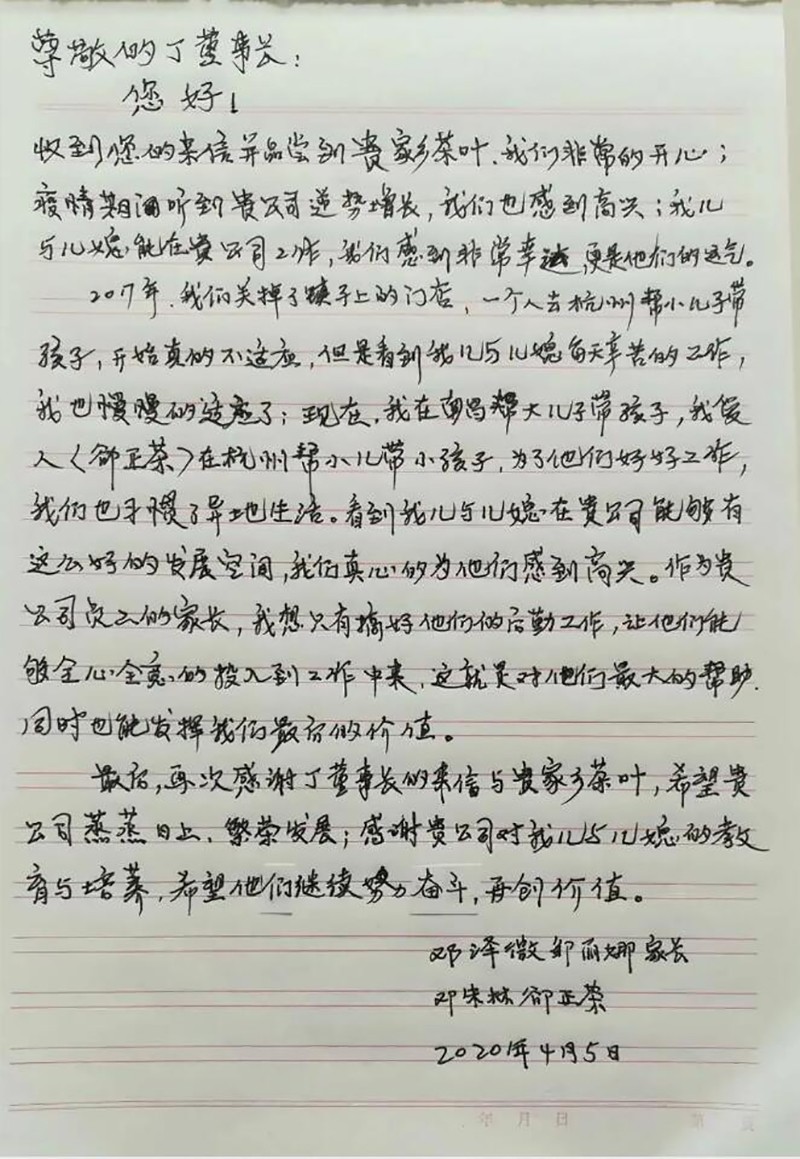 尊敬的丁董事长：
您好！
收到您的来信并品尝到贵家乡茶叶、我们非常的开心；
疫情期间听到贵公司逆势增长，我们也感到高兴；我儿
与儿媳能在贵公司工作，我们感到非常幸运，更是他们的运气。
2017年，我们关掉了镇子上的门店，一个人去杭州帮小儿子带
孩子，开始真的不适应，但是看到我儿与儿媳每天辛苦的工作，
我也慢慢的适应了；现在，我在南昌帮大儿子带孩子，我爱
人〈邰正荣〉在杭州帮小儿带小孩子，为了他们好好工作，
我们也习惯了异地生活。看到我儿与儿媳在贵公司能够有
这么好的发展空间，我们真心的为他们感到高兴。作为贵
公司员工的家长，我想只有搞好他们的后勤工作，让他们能
够全心全意的投入到工作中来，这就是对他们最大的帮助.
同时也能发挥我们最后的价值。
最后，再次感谢丁董事长的来信与贵家乡茶叶，希望贵
公司蒸蒸日上、繁荣发展；感谢贵公司对我儿与儿媳的教
育与培养，希望他们继续努力奋斗，再创价值。
邓泽微邹丽娜家长
邓 林邰正荣
2020年4月5日
年 月 日 第 页